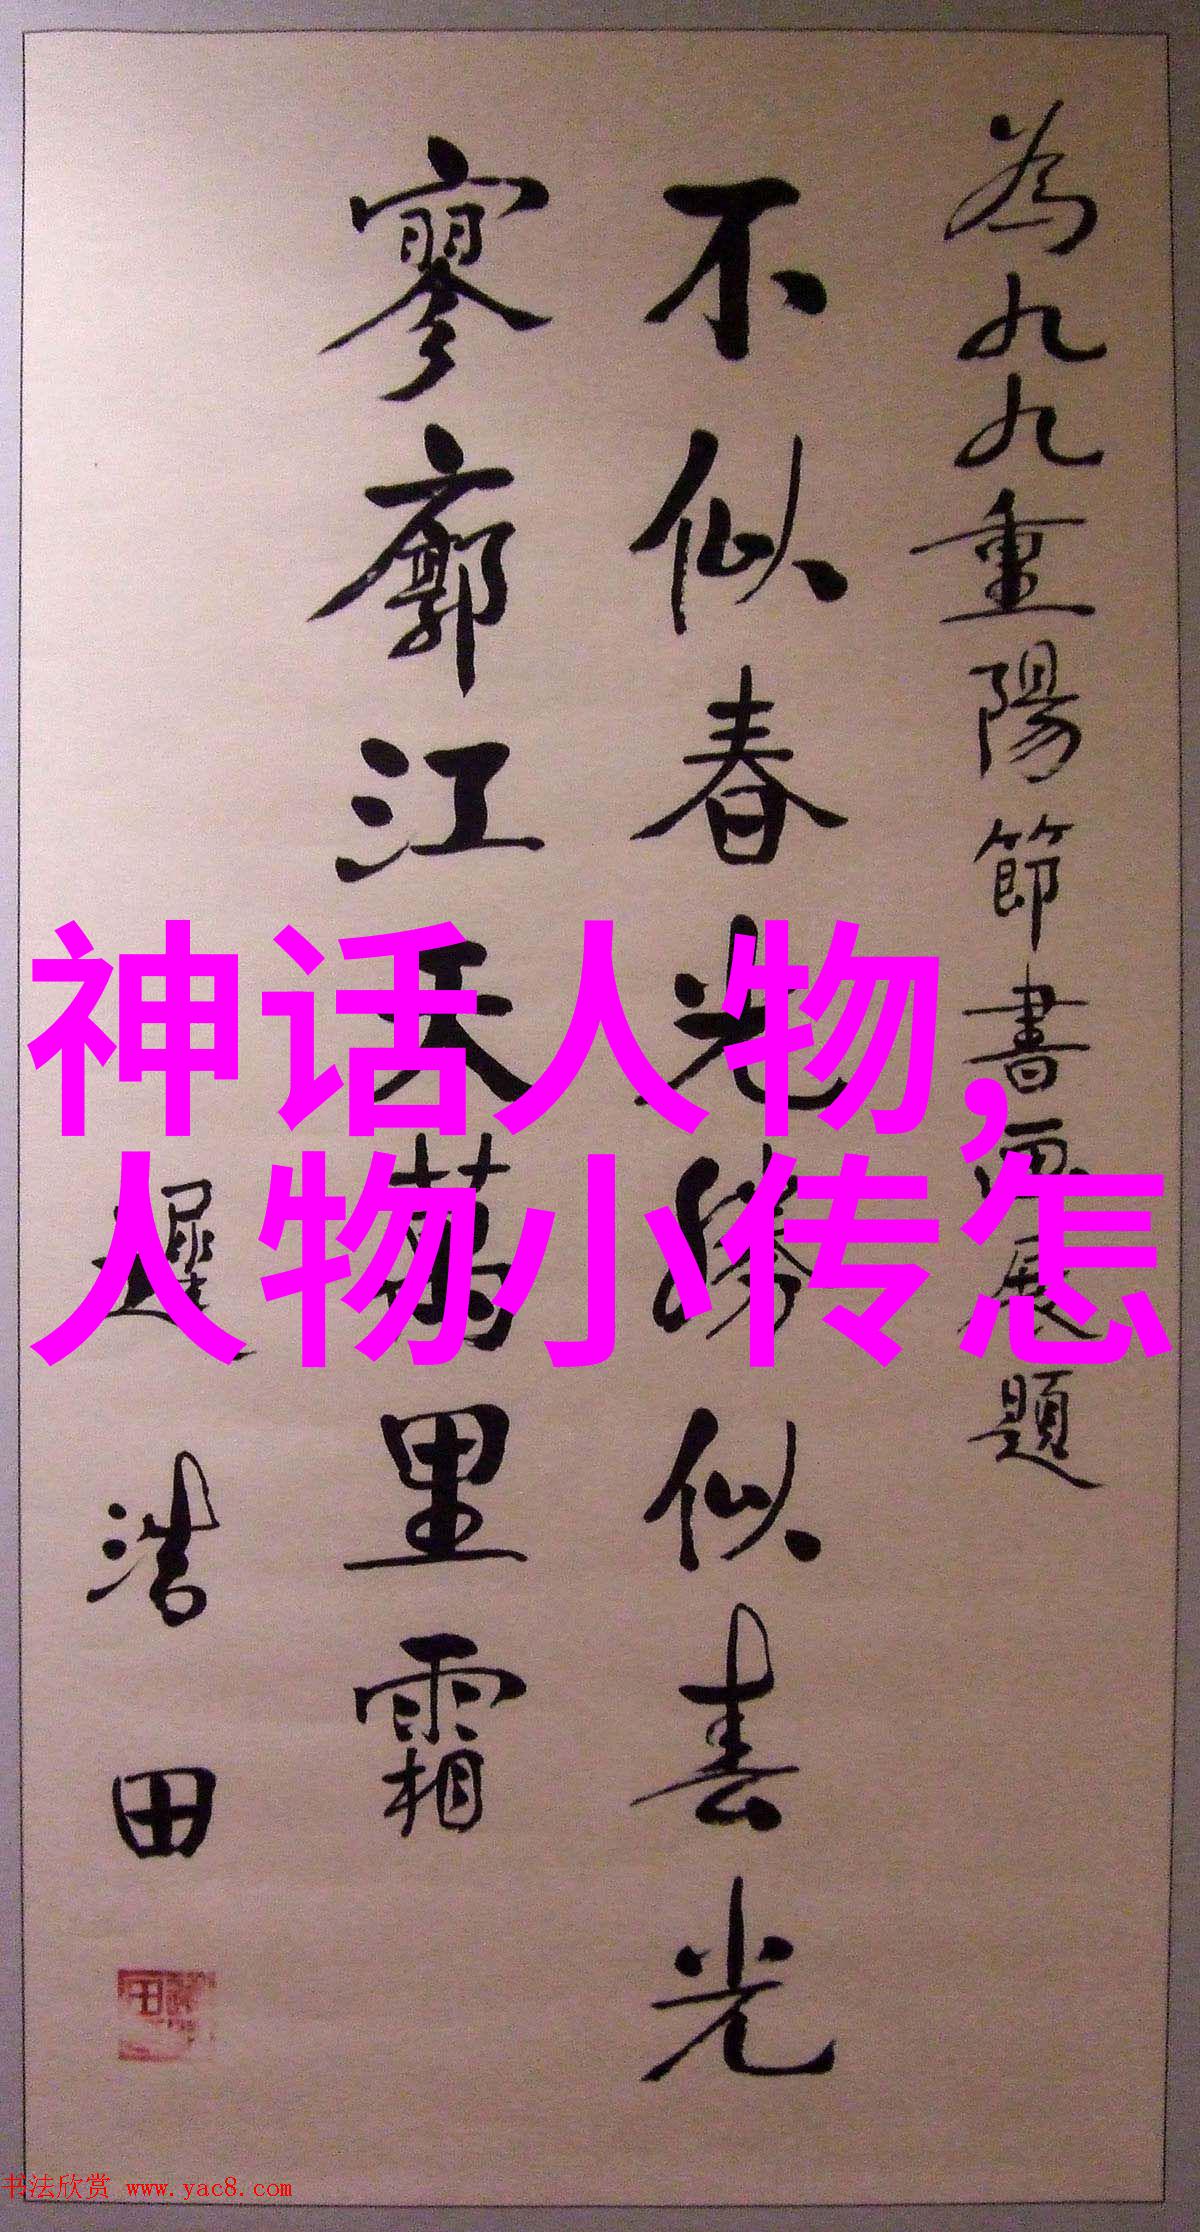 為九九重陽節書畫展題
不似春光勝似春光
寥廓江天萬里霜
遲浩田
神话人物,
人物小传怎
书法欣赏 www.yac8.com